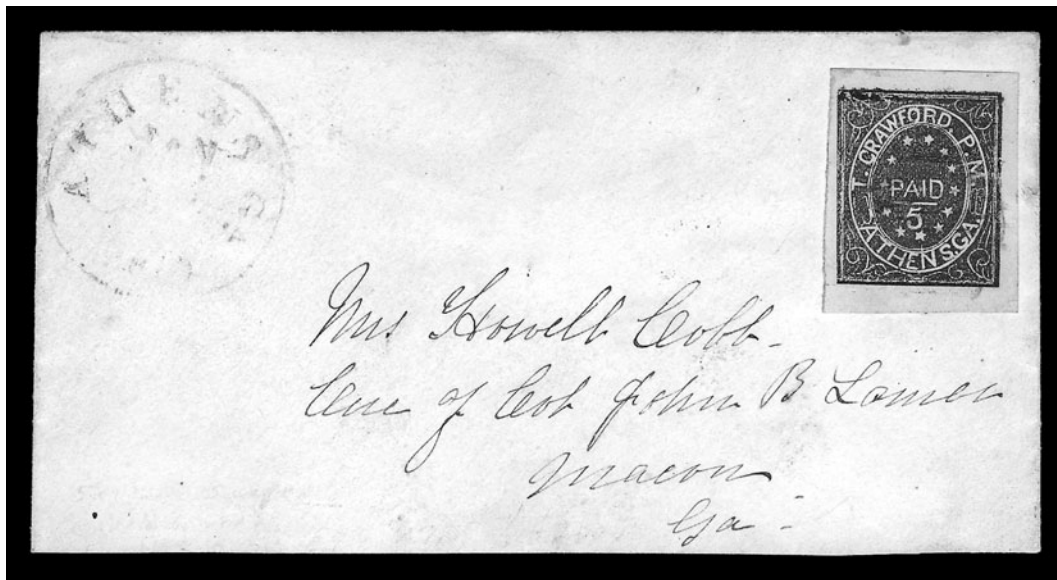 ATHENS GA.
T. CRAWFORD, P. M.
PAID
5
ATHENS, GA.
Mrs Howell Cobb.
Care of Col John B Lamar
Macon
Ga -